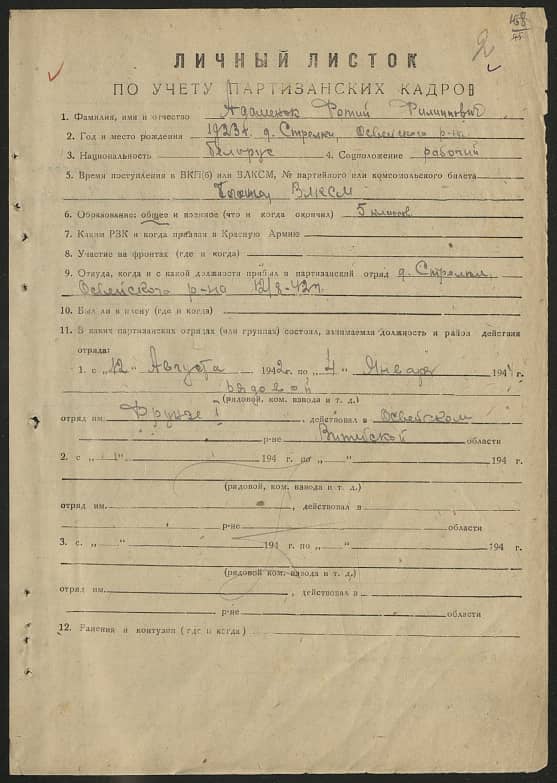 ЛИЧНЫЙ ЛИСТОК
ПО УЧЕТУ ПАРТИЗАНСКИХ КАДРОВ
1. Фамилия, имя и отчество Адаменок Фотий Филиппович
2. Год и место рождения 1923 г. д. Стрелки, Освейского р-на
3. Национальность Белорус 4. Соцположение рабочий
5. Время поступления в ВКП(б) или ВЛКСМ, № партийного или комсомольского билета
ВЛКСМ
6. Образование: общее и военное (что и когда окончил) 5 классов
7. Каким РВК и когда призван в Красную Армию
8. Участие на фронтах (где и когда)
9. Откуда, когда и с какой должности прибыл в партизанский отряд д. Стрелки,
Освейского р-на 12/8-42 г.
10. Был ли в плену (где и когда)
11. В каких партизанских отрядах (или группах) состоял, занимаемая должность и район действия
отряда:
1. с „12" Августа 1942 г. по „4" Января 194 г.
рядовой
(рядовой, ком. взвода и т. д.)
отряд им. Фрунзе, действовал в Освейском
р-не Витебской области
2. с „ 1" 194 г. по „ " 194 г.
(рядовой, ком. взвода и т. д.)
отряд им. , действовал в
р-не области
3. с „ " 194 г. по „ " 194 г.
(рядовой ком. взвода и т. д.)
отряд им. , действовал в
р-не области
12. Ранения и контузии (где и когда)